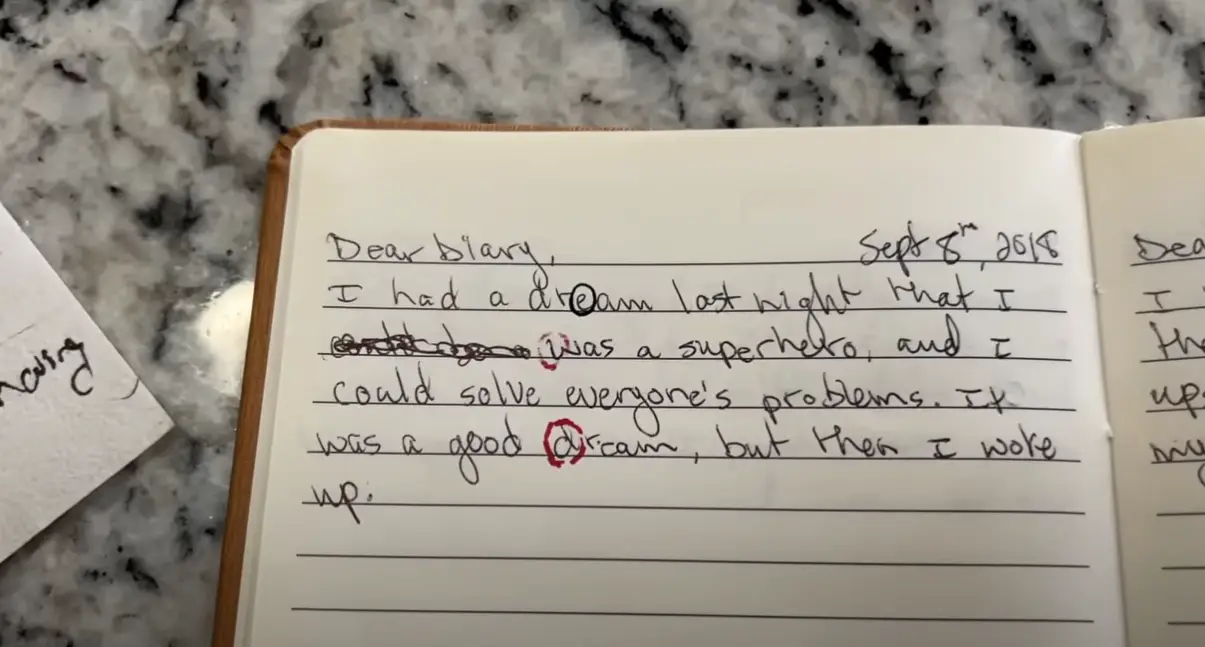 Dear Diary, Sept 8th, 2018
I had a dream last night that I
was a superhero, and I
could solve everyone's problems. It
was a good dream, but then I woke
up.
Dea
I
the
up